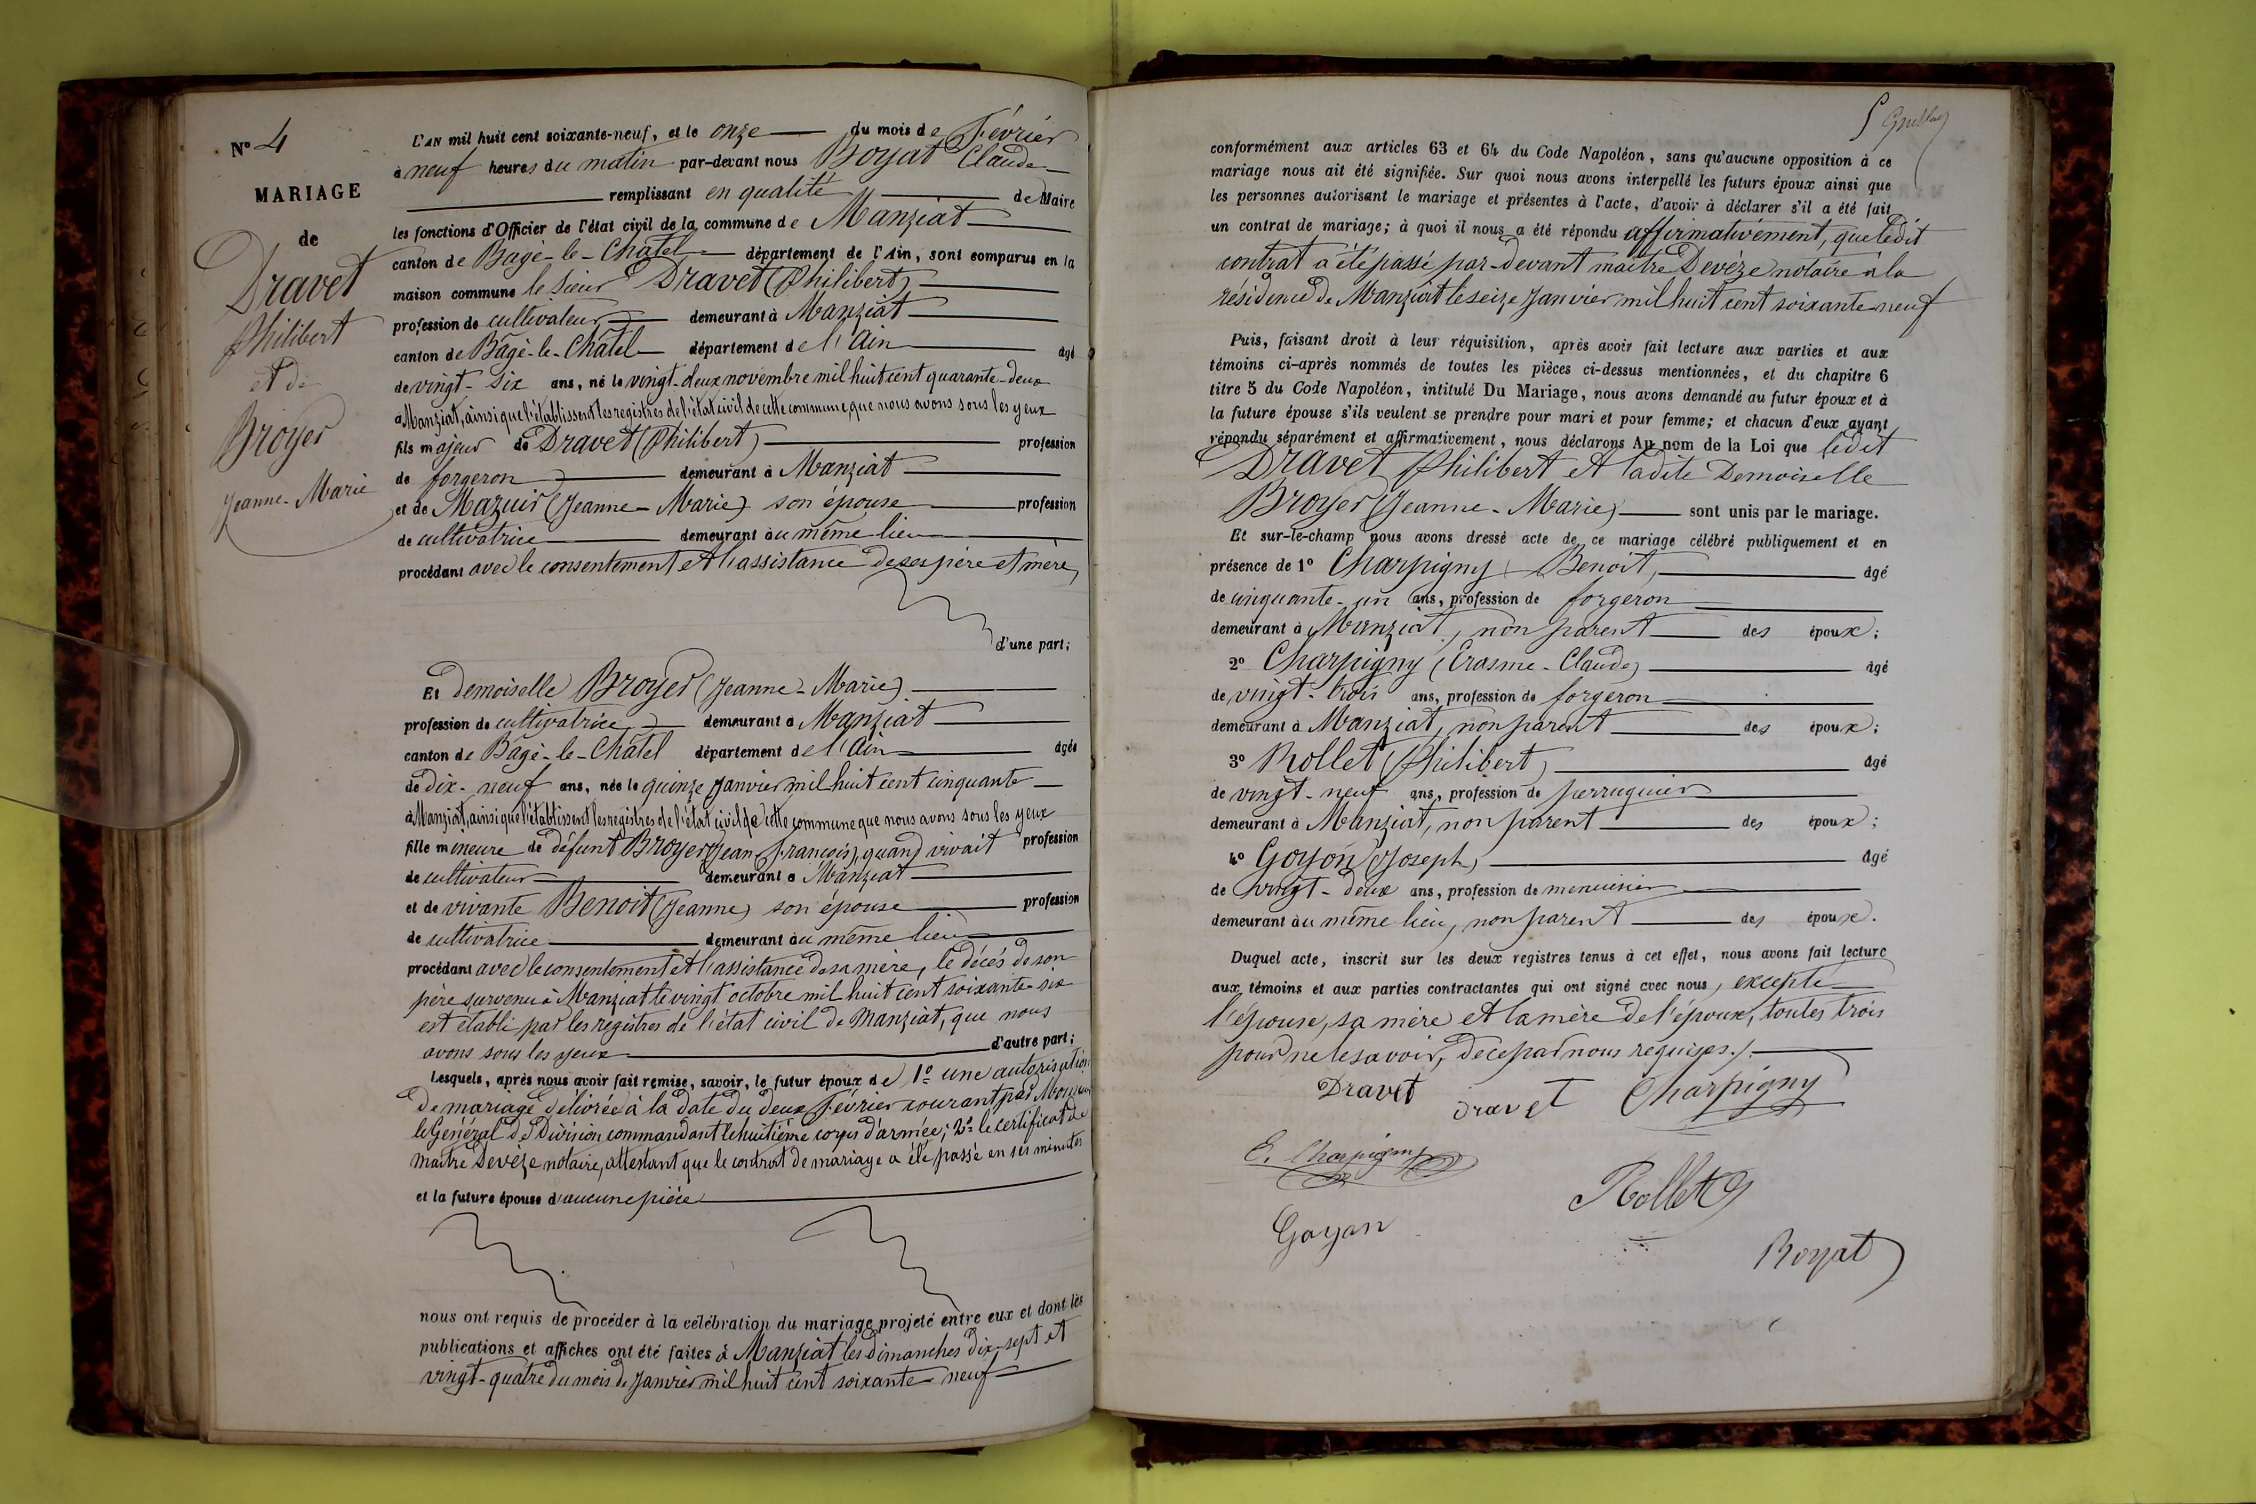 N° 4
MARIAGE
de
Dravet
Philibert
et de
Broyer
Jeanne-Marie
L'AN mil huit cent soixante-neuf, et le onze du mois de Février
à neuf heures du matin par-devant nous Boyat Claude
remplissant en qualité de Maire
les fonctions d'Officier de l'état civil de la commune de Manziat
canton de Bâgé-le-Châtel département de l'Ain, sont comparus en la
maison commune le sieur Dravet (Philibert)
profession de cultivateur demeurant à Manziat
canton de Bâgé-le-Châtel département de l'Ain âgé
de vingt-six ans, né le vingt-deux novembre mil huit cent quarante-deux
à Manziat, ainsi que l'établissent les registres de l'état civil de cette commune, que nous avons sous les yeux
fils majeur de Dravet (Philibert) profession
de forgeron demeurant à Manziat
et de Mazuir (Jeanne-Marie) son épouse profession
de cultivatrice demeurant au même lieu
procédant avec le consentement et l'assistance de ses père et mère,
d'une part;
Et demoiselle Broyer (Jeanne-Marie)
profession de cultivatrice demeurant à Manziat
canton de Bâgé-le-Châtel département de l'Ain âgée
de dix-neuf ans, née le quinze Janvier mil huit cent cinquante
à Manziat, ainsi que l'établissent les registres de l'état civil de cette commune que nous avons sous les yeux
fille mineure de défunt Broyer (Jean François), quand vivait profession
de cultivateur demeurant à Manziat
et de vivante Benoit (Jeanne) son épouse profession
de cultivatrice demeurant au même lieu
procédant avec le consentement et l'assistance de sa mère, le décés de son
père survenu à Manziat le vingt octobre mil huit cent soixante-six
est établi par les registres de l'état civil de Manziat, que nous
avons sous les yeux d'autre part;
Lesquels, après nous avoir fait remise, savoir, le futur époux de 1° une autorisation
de mariage délivrée à la date du deux Février courant par Monsieur
le Général de Division commandant le huitième corps d'armée; 2° le certificat de
maître Devèze notaire, attestant que le contrat de mariage a été passé en ses minutes
et la future épouse d'aucune pièce
nous ont requis de procéder à la célébration du mariage projeté entre eux et dont les
publications et affiches ont été faites à Manziat les dimanches dix-sept et
vingt-quatre du mois de Janvier mil huit cent soixante-neuf
conformément aux articles 63 et 64 du Code Napoléon, sans qu'aucune opposition à ce
mariage nous ait été signifiée. Sur quoi nous avons interpellé les futurs époux ainsi que
les personnes autorisant le mariage et présentes à l'acte, d'avoir à déclarer s'il a été fait
un contrat de mariage; à quoi il nous a été répondu affirmativement, que ledit
contrat a été passé par-devant maître Devèze notaire à la
résidence de Manziat le seize Janvier mil huit cent soixante-neuf
Puis, faisant droit à leur réquisition, après avoir fait lecture aux parties et aux
témoins ci-après nommés de toutes les pièces ci-dessus mentionnées, et du chapitre 6
titre 5 du Code Napoléon, intitulé Du Mariage, nous avons demandé au futur époux et à
la future épouse s'ils veulent se prendre pour mari et pour femme; et chacun d'eux ayant
répondu séparément et affirmativement, nous déclarons Au nom de la Loi que ledit
Dravet Philibert et ladite Demoiselle
Broyer (Jeanne-Marie) sont unis par le mariage.
Et sur-le-champ nous avons dressé acte de ce mariage célébré publiquement et en
présence de 1° Charpigny Benoit, âgé
de cinquante-un ans, profession de forgeron
demeurant à Manziat, non parent des époux;
2° Charpigny (Erasme-Claude) âgé
de vingt-trois ans, profession de forgeron
demeurant à Manziat, non parent des époux;
3° Rollet (Philibert) âgé
de vingt-neuf ans, profession de perruquier
demeurant à Manziat, non parent des époux;
4° Goyon (Joseph) âgé
de vingt-deux ans, profession de menuisier
demeurant au même lieu, non parent des époux.
Duquel acte, inscrit sur les deux registres tenus à cet effet, nous avons fait lecture
aux témoins et aux parties contractantes qui ont signé avec nous, excepté
l'épouse, sa mère et la mère de l'époux, toutes trois
pour ne le savoir, de ce par nous requises./.
Dravet dravet Charpigny
E. Charpigny
Rollet
Goyon
Boyat